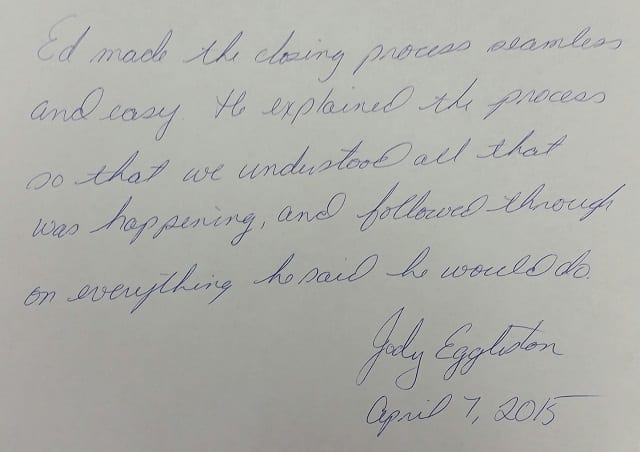 Ed made the closing process seamless
and easy. He explained the process
so that we understood all that
was happening, and followed through
on everything he said he would do.
Jody Eggleston
April 7, 2015